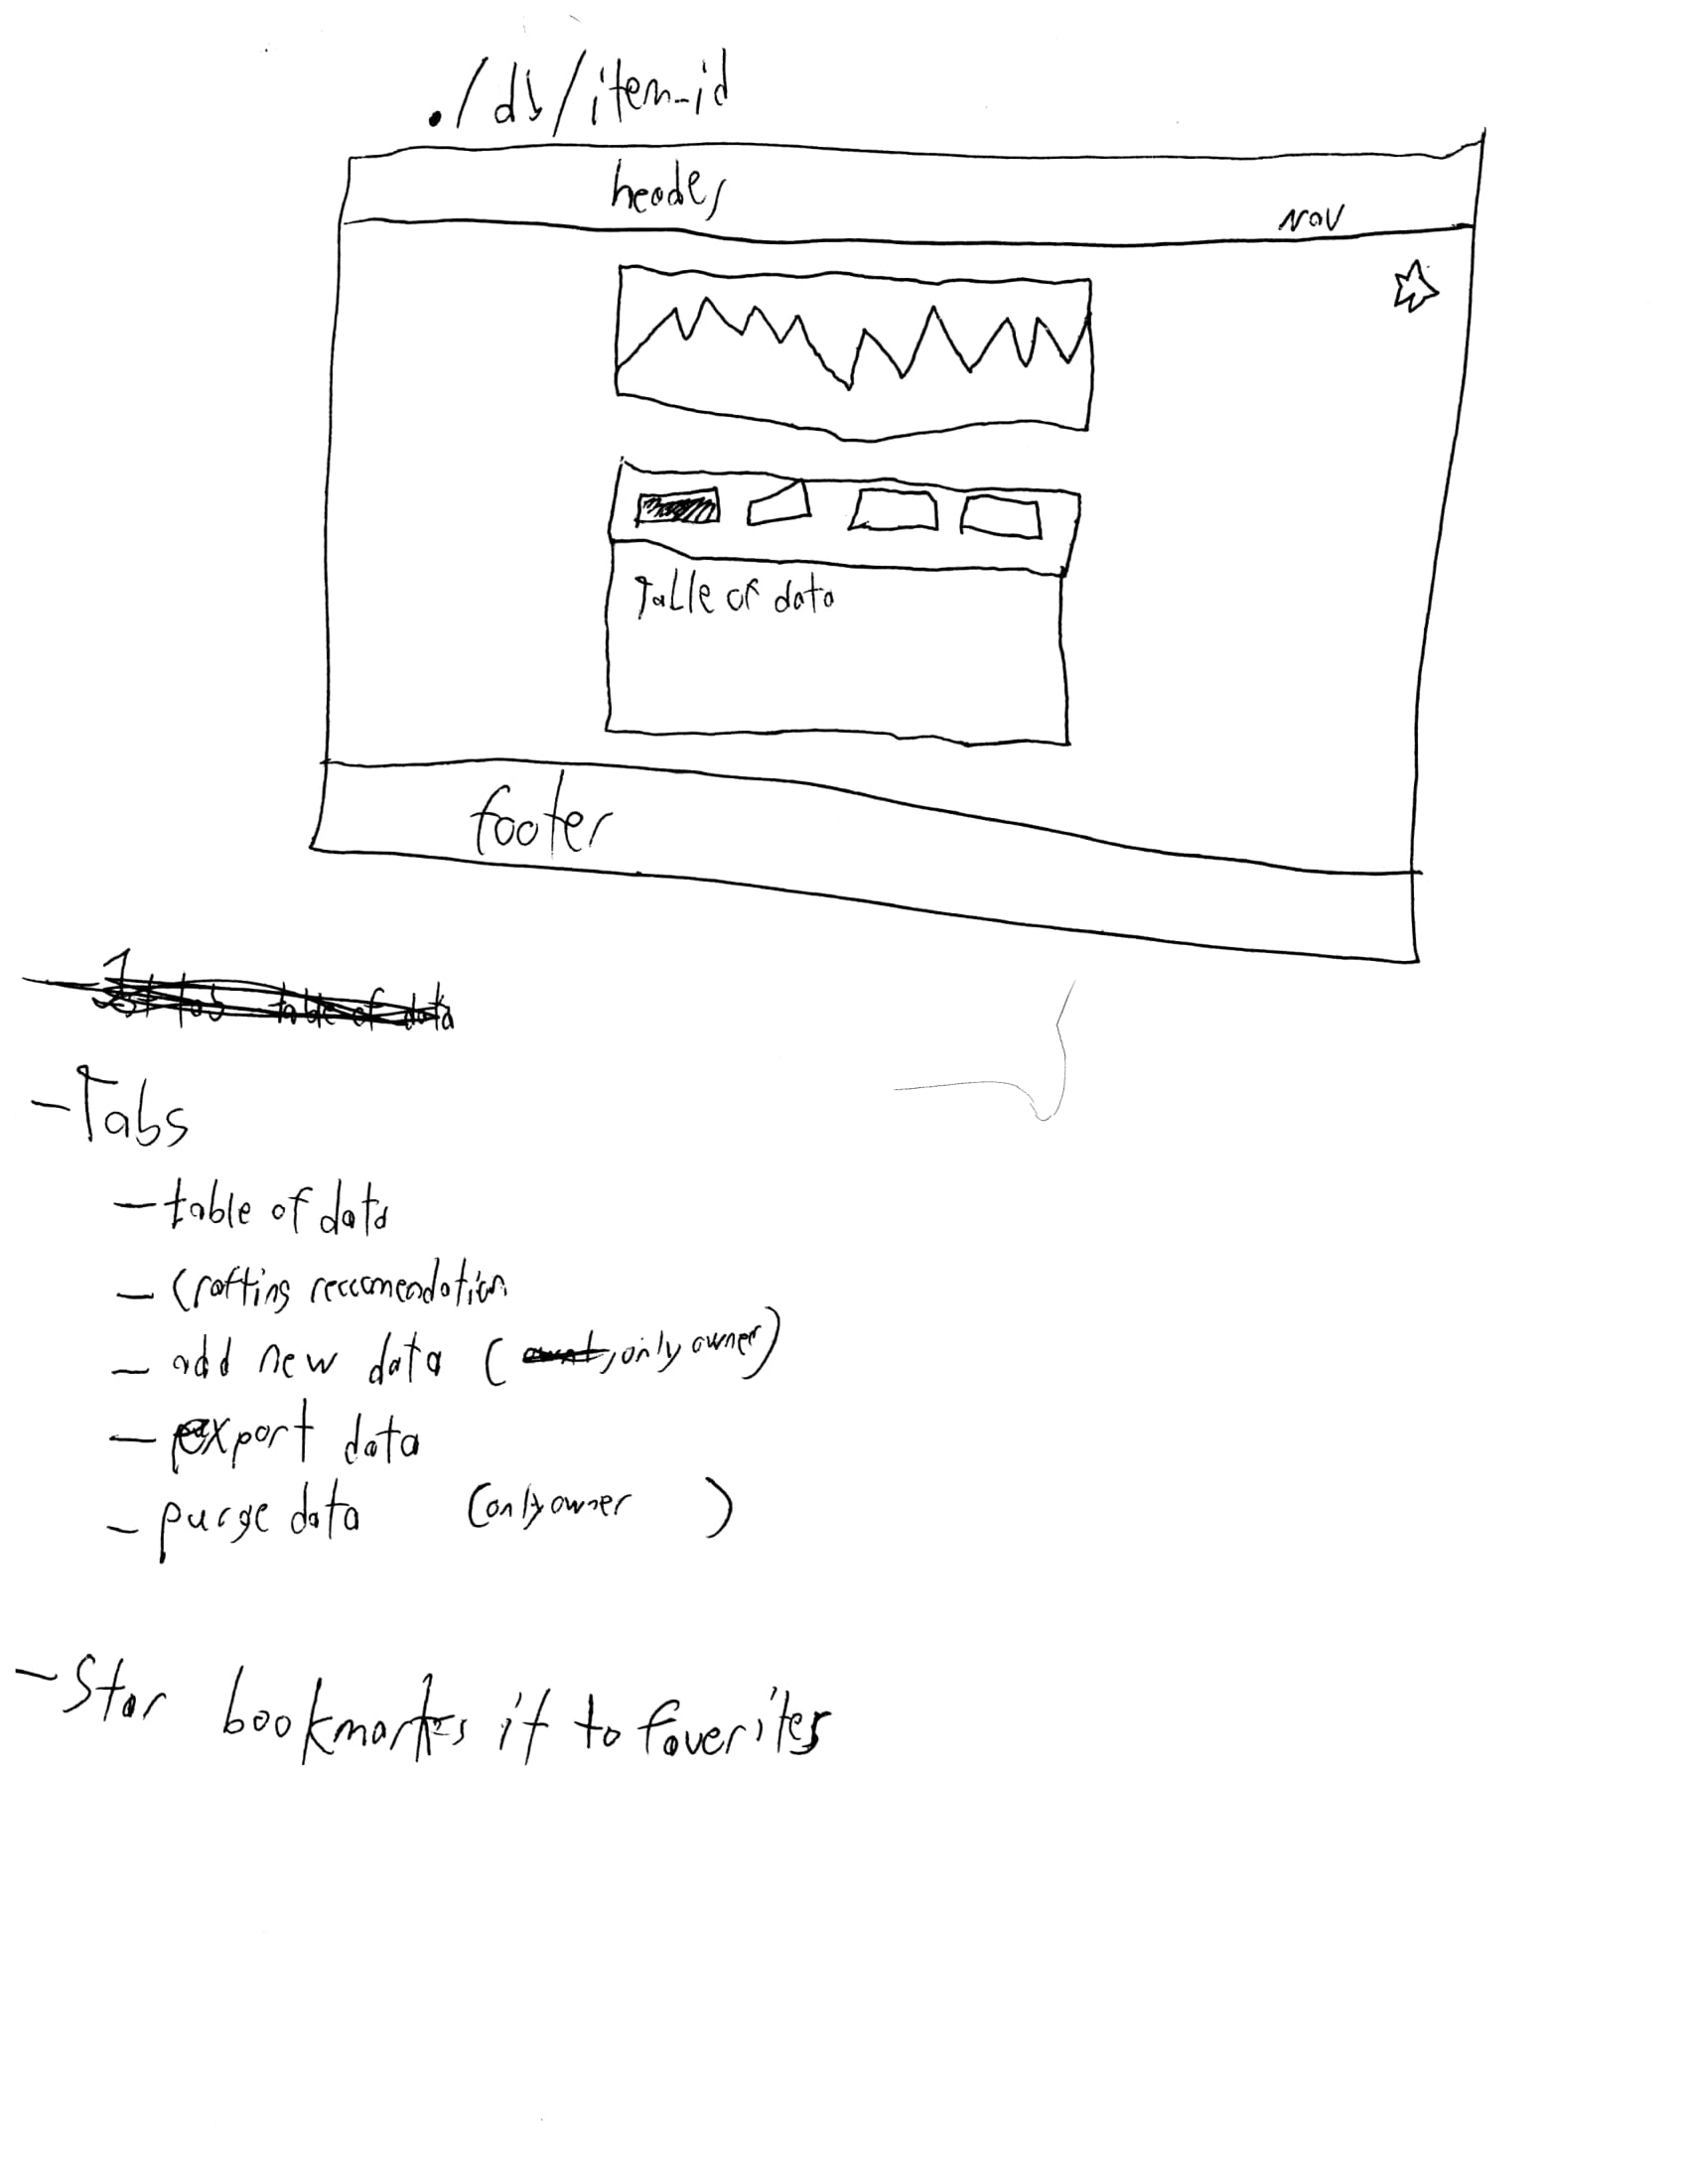 ./db/item_id
header
nav
Table of data
footer
- 1st tab table of data
- Tabs
- table of data
- Crafting reccomendation
- add new data (only owner)
- export data
- purge data (only owner )
- Star bookmarks it to faverites